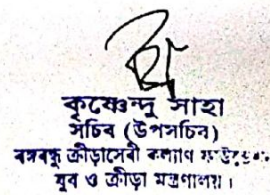 কৃষ্ণেন্দু সাহা
সচিব (উপসচিব)
বঙ্গবন্ধু ক্রীড়াসেবী কল্যাণ
যুব ও ক্রীড়া মন্ত্রণালয়।